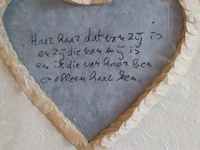 Haar haar dat van zij is
en zij die van mij is
en ik die van haar ben
en alleen haar ken.